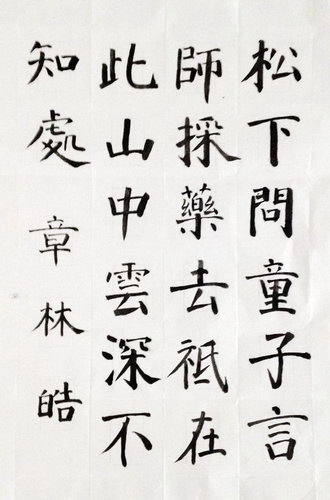 松下問童子言
師採藥去祗在
此山中雲深不
知處
章林皓